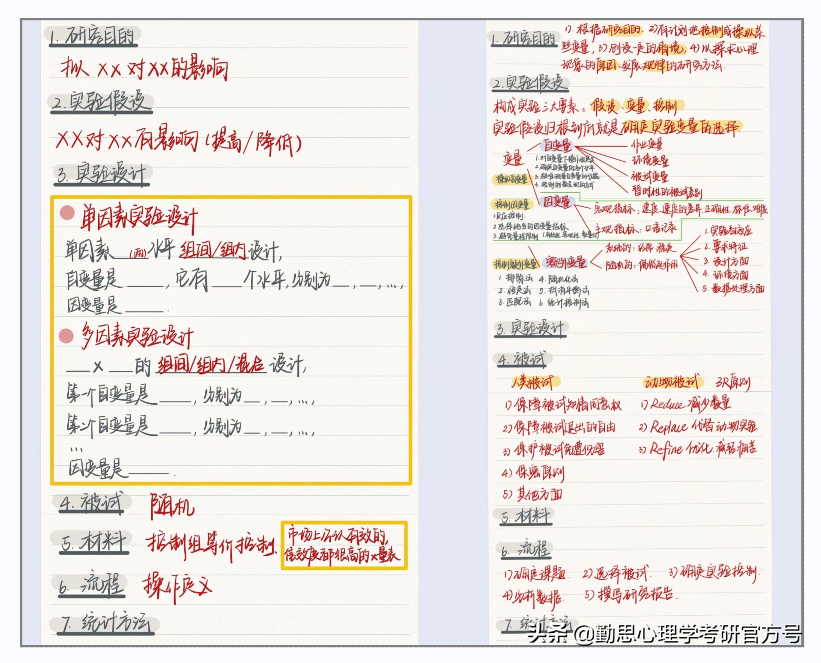 1. 研究目的
拟从 XX 对XX 的影响
2. 实验假设
XX对XX有影响 (提高/降低)
3. 实验设计
单因素实验设计
单因素__(两)水平 组间/组内设计,
自变量是____, 它有___个水平, 分别为__, __, ...,
因变量是____.
多因素实验设计
___ x ___的 组间/组内/混合 设计,
第一个自变量是____, 分别为__, __, ...,
第二个自变量是____, 分别为__, __, ...,
...
因变量是____.
4. 被试 随机
5. 材料 控制组等价控制.
市场上公认有效的,
信效度都很高的X量表
6. 流程 操作定义
7. 统计方法
1. 研究目的
1) 根据研究目的, 2) 有计划地控制或操纵某
些变量, 3) 创设一定的情境, 4) 以探求心理
现象的原因、发展规律的研究方法.
2. 实验假设
构成实验三大要素: 假设、变量、控制
实验假设归根到底就是确定实验变量的选择
变量
自变量
作业变量
环境变量
被试变量
暂时性的被试差别
操纵自变量
控制因变量
因变量
客观指标: 速度、速度的差异、正确性、
主观指标: 口语记录
控制额外变量
额外变量
系统的:
随机的: 偶然起作用
1. 实验者效应
2. 要求特征
3. 设计方面
4. 环境方面
5. 数据处理方面
1. 排除法 4. 随机化法
2. 恒定法 5. 抵消平衡法
3. 匹配法 6. 统计控制法
3. 实验设计
4. 被试
人类被试
动物被试 3R原则
1) 保障被试知情同意权
1) Reduce 减少数量
2) 保障被试退出的自由
2) Replace 代替动物实验
3) 保护被试免遭伤害
3) Refine 优化 减轻痛苦
4) 保密原则
5) 其他方面
5. 材料
6. 流程
1) 确定课题 2) 选择被试 3) 确定实验控制
4) 分析数据 5) 撰写研究报告.
7. 统计方法
头条 @勤思心理学考研官方号